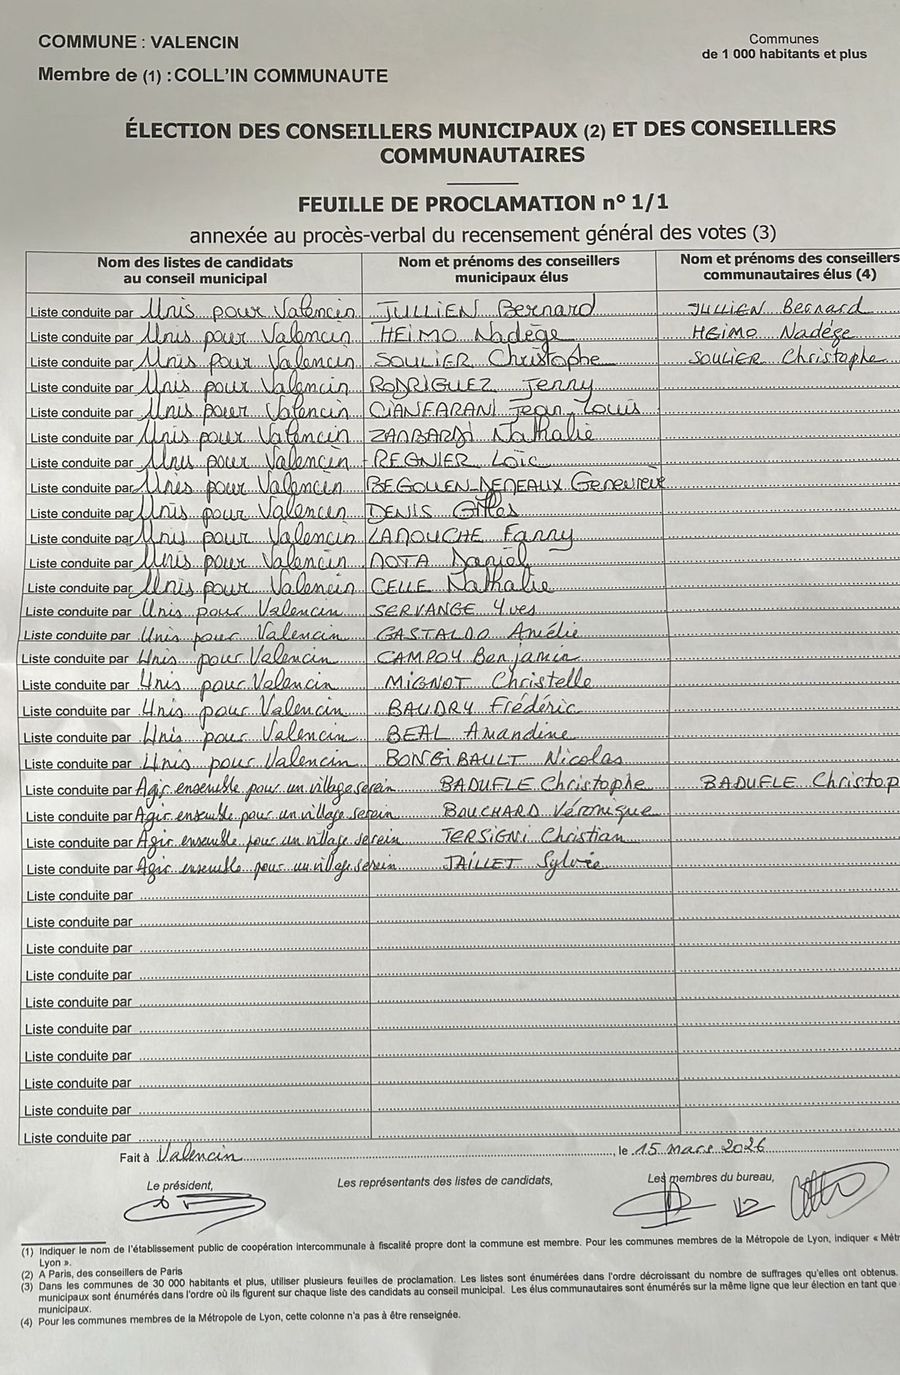 COMMUNE : VALENCIN
Communes
de 1 000 habitants et plus
Membre de (1) : COLL'IN COMMUNAUTE
ÉLECTION DES CONSEILLERS MUNICIPAUX (2) ET DES CONSEILLERS
COMMUNAUTAIRES
FEUILLE DE PROCLAMATION n° 1/1
annexée au procès-verbal du recensement général des votes (3)
Nom des listes de candidats
au conseil municipal
Nom et prénoms des conseillers
municipaux élus
Nom et prénoms des conseillers
communautaires élus (4)
Liste conduite par Unis pour Valencin JULLIEN Bernard JULLIEN Bernard
Liste conduite par Unis pour Valencin HEIMO Nadège HEIMO Nadège
Liste conduite par Unis pour Valencin SOULIER Christophe SOULIER Christophe
Liste conduite par Unis pour Valencin RODRIGUEZ Jenny
Liste conduite par Unis pour Valencin CIANFARANI Jean-Louis
Liste conduite par Unis pour Valencin Nathalie
Liste conduite par Unis pour Valencin REGNIER Loïc
Liste conduite par Unis pour Valencin Geneviève
Liste conduite par Unis pour Valencin DENIS Gilles
Liste conduite par Unis pour Valencin LANOUCHE Fanny
Liste conduite par Unis pour Valencin MOTA Daniel
Liste conduite par Unis pour Valencin CELLE Nathalie
Liste conduite par Unis pour Valencin SERVANGE Yves
Liste conduite par Unis pour Valencin GASTALDO Amélie
Liste conduite par Unis pour Valencin CAMPOY Benjamin
Liste conduite par Unis pour Valencin MIGNOT Christelle
Liste conduite par Unis pour Valencin BAUDRY Frédéric
Liste conduite par Unis pour Valencin BEAL Amandine
Liste conduite par Unis pour Valencin BONGIBAULT Nicolas
Liste conduite par Agir ensemble pour un village serein BADUFLE Christophe BADUFLE Christop
Liste conduite par Agir ensemble pour un village serein BOUCHARD Véronique
Liste conduite par Agir ensemble pour un village serein TERSIGNI Christian
Liste conduite par Agir ensemble pour un village serein JAILLET Sylvie
Liste conduite par
Liste conduite par
Liste conduite par
Liste conduite par
Liste conduite par
Liste conduite par
Liste conduite par
Liste conduite par
Liste conduite par
Liste conduite par
Fait à Valencin, le 15 mars 2026
Le président,
Les représentants des listes de candidats,
Les membres du bureau,
(1) Indiquer le nom de l'établissement public de coopération intercommunale à fiscalité propre dont la commune est membre. Pour les communes membres de la Métropole de Lyon, indiquer « Métr
Lyon ».
(2) A Paris, des conseillers de Paris
(3) Dans les communes de 30 000 habitants et plus, utiliser plusieurs feuilles de proclamation. Les listes sont énumérées dans l'ordre décroissant du nombre de suffrages qu'elles ont obtenus.
municipaux sont énumérés dans l'ordre où ils figurent sur chaque liste des candidats au conseil municipal. Les élus communautaires sont énumérés sur la même ligne que leur élection en tant que
municipaux.
(4) Pour les communes membres de la Métropole de Lyon, cette colonne n'a pas à être renseignée.